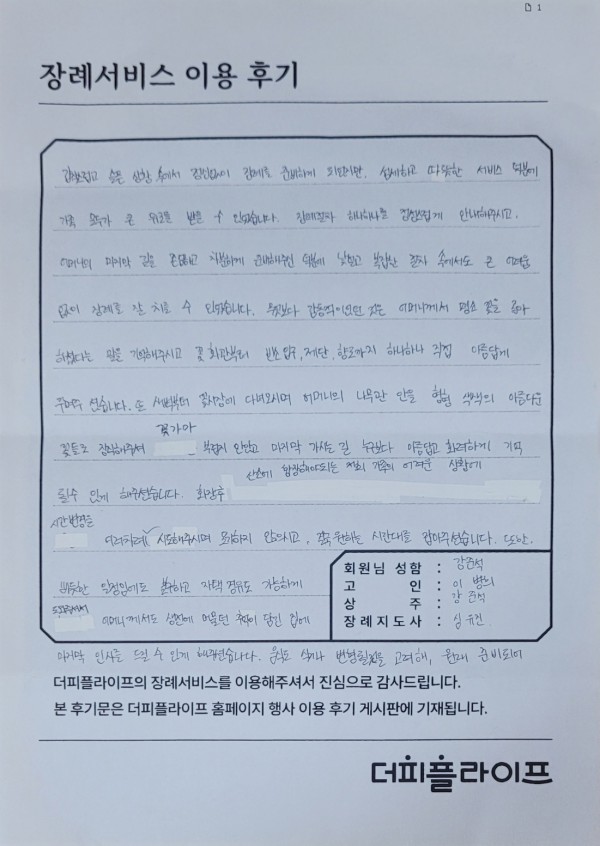 1
장례서비스 이용 후기
갑작스럽고 슬픈 상황 속에서 경황없이 장례를 준비하게 되었지만, 섬세하고 따뜻한 서비스 덕분에
가족 모두가 큰 위로를 받을 수 있었습니다. 장례절차 하나하나를 정성스럽게 안내해주시고,
어머니의 마지막 길을 존엄하고 차분하게 준비해주신 덕분에 낯설고 복잡한 절차 속에서도 큰 어려움
없이 장례를 잘 치를 수 있었습니다. 무엇보다 감동적이었던 것은 어머니께서 평소 꽃을 좋아
하셨다는 말을 기억해주시고 꽃 회관부터 입구, 제단, 하나하나 직접 아름답게
꾸며주셨습니다. 또 새벽부터 꽃시장에 다녀오시며 어머니의 나무관 안을 형형색색의 아름다운
꽃들로 장식해주셔서 꽃가마 부럽지 않았고 마지막 가시는 길 누구보다 아름답고 화려하게 기억
될 수 있게 해주셨습니다. 화장후 선산에 합장해야되는 저희 가족의 어려운 상황에
시간변경을 여러차례 시도해주시며 포기하지 않으시고, 꼭 원하는 시간대를 잡아주셨습니다. 또한,
빠듯한 일정임에도 불구하고 자택 경유도 가능하게
어머니께서도 생전에 머물던 추억이 담긴 집에
회원님 성함 : 강준석
고 인 : 이
상 주 : 강준석
장례지도사 : 심유건
마지막 인사를 드릴 수 있게 해주셨습니다. 음식도 고려해, 원래 준비되어
더피플라이프의 장례서비스를 이용해주셔서 진심으로 감사드립니다.
본 후기문은 더피플라이프 홈페이지 행사 이용 후기 게시판에 기재됩니다.
더피플라이프